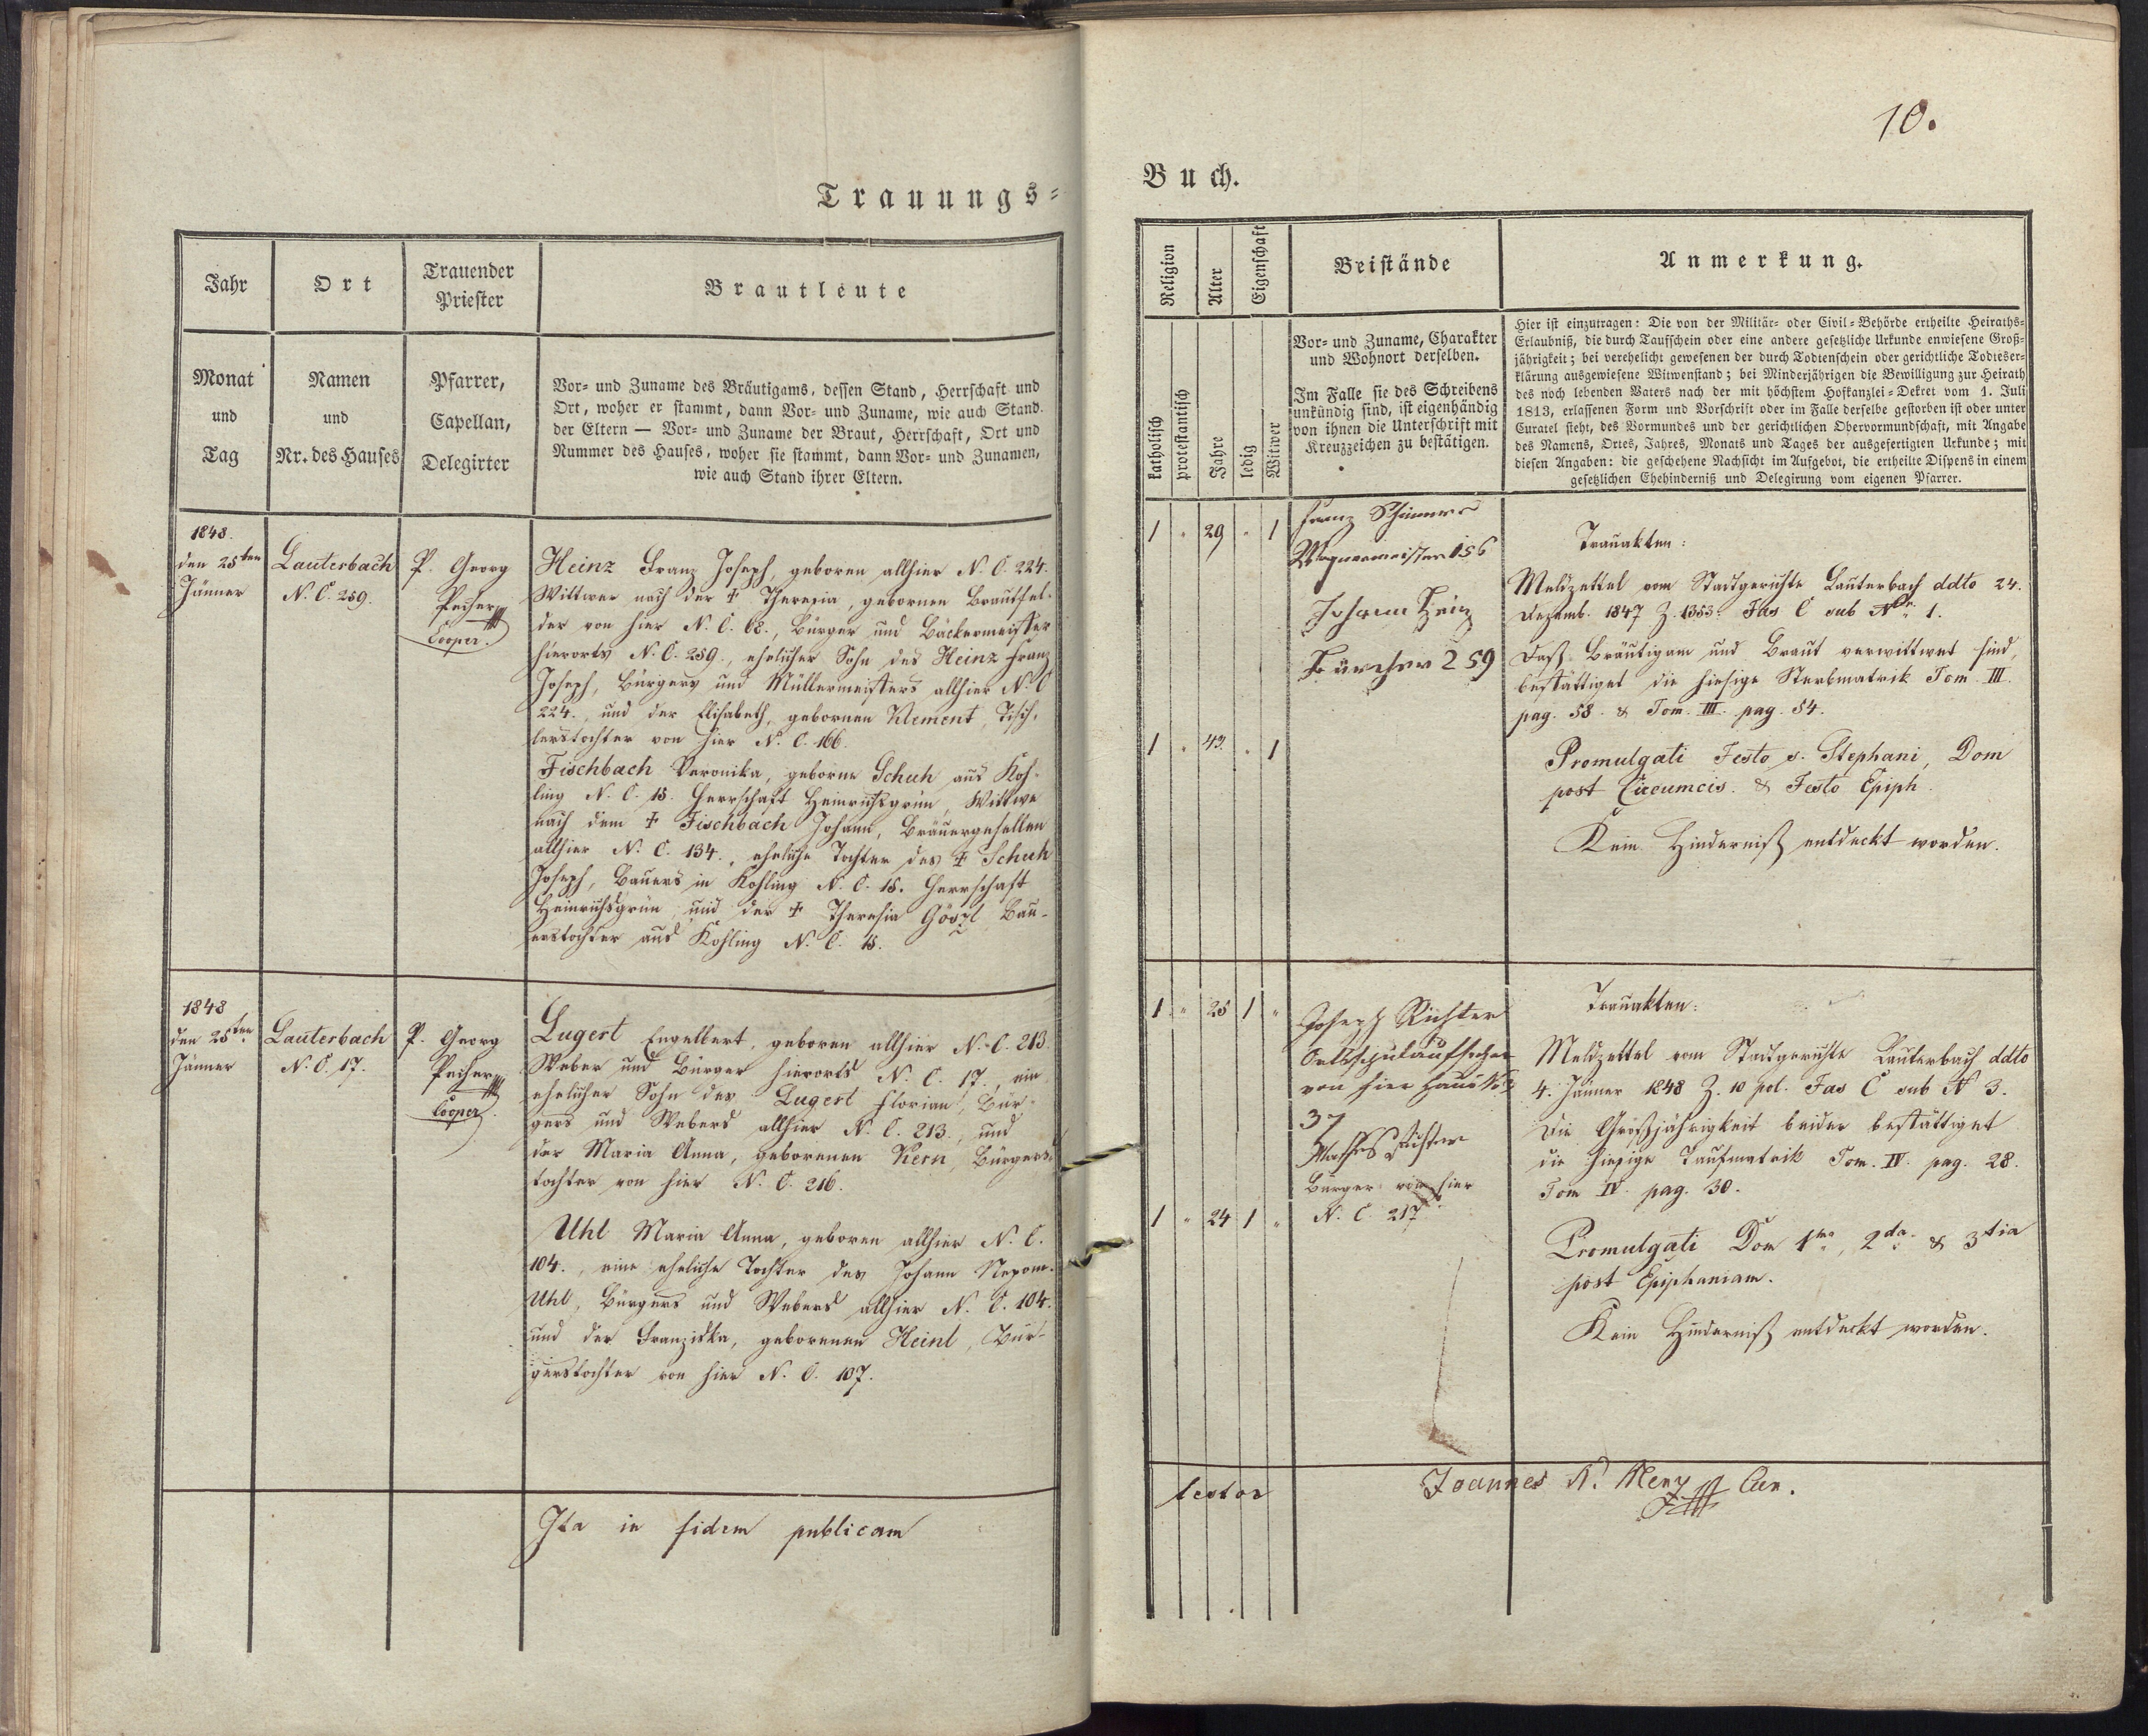 10.
Trauungs=
Buch.
Jahr
Ort
Trauender
Priester
Brautleute
Monat
und
Tag
Namen
und
Nr. des Hauses
Pfarrer,
Capellan,
Delegirter
Vor- und Zuname des Bräutigams, dessen Stand, Herrschaft und
Ort, woher er stammt, dann Vor- und Zuname, wie auch Stand
der Eltern — Vor- und Zuname der Braut, Herrschaft, Ort und
Nummer des Hauses, woher sie stammt, dann Vor- und Zunamen,
wie auch Stand ihrer Eltern.
Religion
Alter
Eigenschaft
Beistände
Anmerkung.
katholisch
protestantisch
Jahre
ledig
Witwer
Vor- und Zuname, Charakter
und Wohnort derselben.
Im Falle sie des Schreibens
unkündig sind, ist eigenhändig
von ihnen die Unterschrift mit
Kreuzzeichen zu bestätigen.
Hier ist einzutragen: Die von der Militär- oder Civil-Behörde ertheilte Heiraths-
Erlaubniß, die durch Taufschein oder eine andere gesetzliche Urkunde enwiesene Groß-
jährigkeit; bei verehelicht gewesenen der durch Todtenschein oder gerichtliche Todteser-
klärung ausgewiesene Witwenstand; bei Minderjährigen die Bewilligung zur Heirath
des noch lebenden Vaters nach der mit höchstem Hofkanzlei-Dekret vom 1. Juli
1813, erlassenen Form und Vorschrift oder im Falle derselbe gestorben ist oder unter
Curatel steht, des Vormundes und der gerichtlichen Obervormundschaft, mit Angabe
des Namens, Ortes, Jahres, Monats und Tages der ausgefertigten Urkunde; mit
diesen Angaben: die geschehene Nachsicht im Aufgebot, die ertheilte Dispens in einem
gesetzlichen Ehehinderniß und Delegirung vom eigenen Pfarrer.
1848.
den 25ten
Jänner
Lauterbach
N. C. 259.
P. Georg
Pecher
Cooper.
Heinz Franz Joseph, geboren allhier N. C. 224.
Wittwer nach der † Theresia, gebornen Brauthel-
der von hier N. C. 68., Bürger und Bäckermeister
hierorts N. C. 259., ehelicher Sohn des Heinz Franz
Joseph, Bürgers und Müllermeisters allhier N. C
224., und der Elisabeth, gebornen Klement, Tisch-
lerstochter von hier N. C. 166.
Fischbach Veronika, geborne Schuh aus Koh-
ling N. C. 18. Herrschaft Heinrichsgrün, Wittwe
nach dem † Fischbach Johann, Bräuergesellen
allhier N. C. 134., eheliche Tochter des † Schuh
Joseph, Bauers in Kohling N. C. 18. Herrschaft
Heinrichsgrün, und der † Theresia Gößl, Bau-
erstochter aus Kohling N. C. 18.
1 " 29 " 1
1 " 43 " 1
Franz
Wagnermeister 156
Johann Heinz
259
Trauakten:
Meldzettel vom Stadtgerichte Lauterbach ddto 24.
Dezemb. 1847 Z. 1353. Fas C sub Nr. 1.
Daß Bräutigam und Braut verwittwet sind,
bestättiget die hiesige Sterbmatrik Tom. III.
pag. 58. & Tom. III. pag. 54.
Promulgati Festo s. Stephani, Dom
post Circumcis. & Festo Epiph.
Kein Hinderniß entdeckt worden.
1848
den 25ten
Jänner
Lauterbach
N. C. 17.
P. Georg
Pecher
Cooper.
Lugert Engelbert, geboren allhier N. C. 213.
Weber und Bürger hierorts N. C. 17., ein
ehelicher Sohn des Lugert Florian, Bür-
gers und Webers allhier N. C. 213., und
der Maria Anna, geborenen Kern, Bürgers-
tochter von hier N. C. 216.
Uhl Maria Anna, geboren allhier N. C.
104., eine eheliche Tochter des Johann Nepom.
Uhl, Bürgers und Webers allhier N. C. 104.
und der Franziska, geborenen Heinl, Bür-
gerstochter von hier N. C. 107.
1 " 25 1 "
1 " 24 1 "
Joseph Richter
Ortsschulaufseher
von hier Haus No
37
Richter
Bürger von hier
N. C. 217
Trauakten:
Meldzettel vom Stadtgerichte Lauterbach ddto
4. Jänner 1848 Z. 10 pol. Fas C sub N 3.
Die Großjährigkeit beider bestättiget
die hiesige Taufmatrik Tom. IV. pag. 28.
Tom IV. pag. 30.
Promulgati Dom 1ma, 2da & 3tia
post Epiphaniam.
Kein Hinderniß entdeckt worden.
Ita in fidem publicam
testor
Joannes N. Menz Cur.